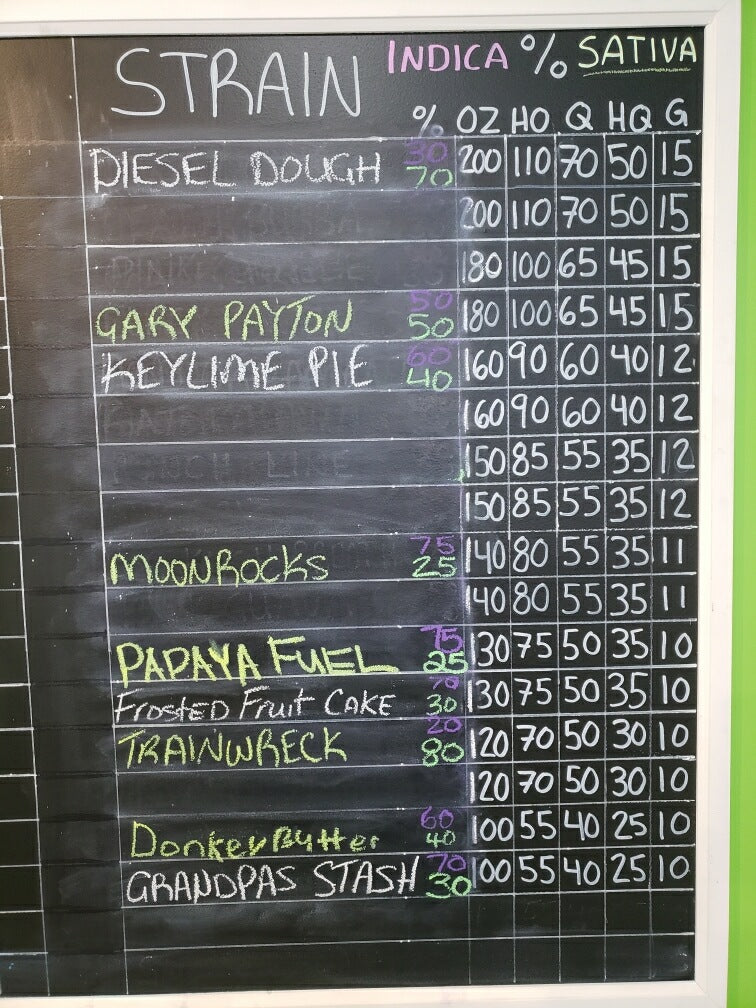 STRAIN INDICA % SATIVA
% OZ HO Q HQ G
DIESEL DOUGH 30 70 200 110 70 50 15
200 110 70 50 15
180 100 65 45 15
GARY PAYTON 50 50 180 100 65 45 15
KEYLIME PIE 60 40 160 90 60 40 12
160 90 60 40 12
150 85 55 35 12
150 85 55 35 12
MOONROCKS 75 25 140 80 55 35 11
140 80 55 35 11
PAPAYA FUEL 75 25 130 75 50 35 10
FROSTED FRuit CAKE 70 30 130 75 50 35 10
TRAINWRECK 20 80 120 70 50 30 10
120 70 50 30 10
DonkeyButter 60 40 100 55 40 25 10
GRANDPAS STASH 70 30 100 55 40 25 10